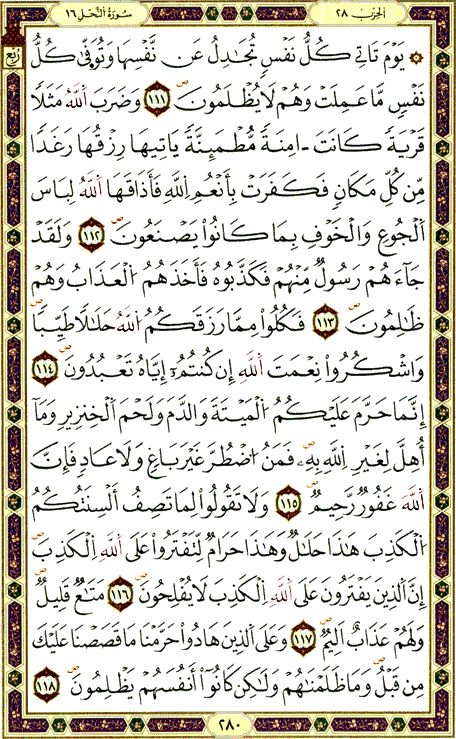 سُورَةُ النَّحْلِ ١٦ الحِزْبُ ٢٨
رُبُع
۞ يَوْمَ تَاتِے كُلُّ نَفْسٖ تُجَٰدِلُ عَن نَّفْسِهَا وَتُوَفّ۪ىٰ كُلُّ
نَفْسٖ مَّا عَمِلَتْ وَهُمْ لَا يُظْلَمُونَۖ ١١١ وَضَرَبَ اَ۬للَّهُ مَثَلاٗ
قَرْيَةٗ كَانَتَ اٰمِنَةٗ مُّطْمَئِنَّةٗ يَاتِيهَا رِزْقُهَا رَغَداٗ
مِّن كُلِّ مَكَانٖ فَكَفَرَتْ بِأَنْعُمِ اِ۬للَّهِ فَأَذَٰقَهَا اَ۬للَّهُ لِبَاسَ
اَ۬لْجُوعِ وَالْخَوْفِ بِمَا كَانُواْ يَصْنَعُونَۖ ١١٢ وَلَقَدْ
جَآءَهُمْ رَسُولٞ مِّنْهُمْ فَكَذَّبُوهُ فَأَخَذَهُمُ اُ۬لْعَذَابُ وَهُمْ
ظَٰلِمُونَۖ ١١٣ فَكُلُواْ مِمَّا رَزَقَكُمُ اُ۬للَّهُ حَلَٰلاٗ طَيِّباٗۖ
وَاشْكُرُواْ نِعْمَتَ اَ۬للَّهِ إِن كُنتُمُۥٓ إِيَّاهُ تَعْبُدُونَۖ ١١٤
إِنَّمَا حَرَّمَ عَلَيْكُمُ اُ۬لْمَيْتَةَ وَالدَّمَ وَلَحْمَ اَ۬لْخِنزِيرِ وَمَآ
أُهِلَّ لِغَيْرِ اِ۬للَّهِ بِهِۦۖ فَمَنُ اُ۟ضْطُرَّ غَيْرَ بَاغٖ وَلَا عَادٖ فَإِنَّ
اَ۬للَّهَ غَفُورٞ رَّحِيمٞۖ ١١٥ وَلَا تَقُولُواْ لِمَا تَصِفُ أَلْسِنَتُكُمُ
اُ۬لْكَذِبَ هَٰذَا حَلَٰلٞ وَهَٰذَا حَرَامٞ لِّتَفْتَرُواْ عَلَى اَ۬للَّهِ اِ۬لْكَذِبَۖ
إِنَّ اَ۬لذِينَ يَفْتَرُونَ عَلَى اَ۬للَّهِ اِ۬لْكَذِبَ لَا يُفْلِحُونَۖ ١١٦ مَتَٰعٞ قَلِيلٞ
وَلَهُمْ عَذَابٌ اَلِيمٞۖ ١١٧ وَعَلَى اَ۬لذِينَ هَادُواْ حَرَّمْنَا مَا قَصَصْنَا عَلَيْكَ
مِن قَبْلُۖ وَمَا ظَلَمْنَٰهُمْ وَلَٰكِن كَانُوٓاْ أَنفُسَهُمْ يَظْلِمُونَۖ ١١٨
٢٨٠